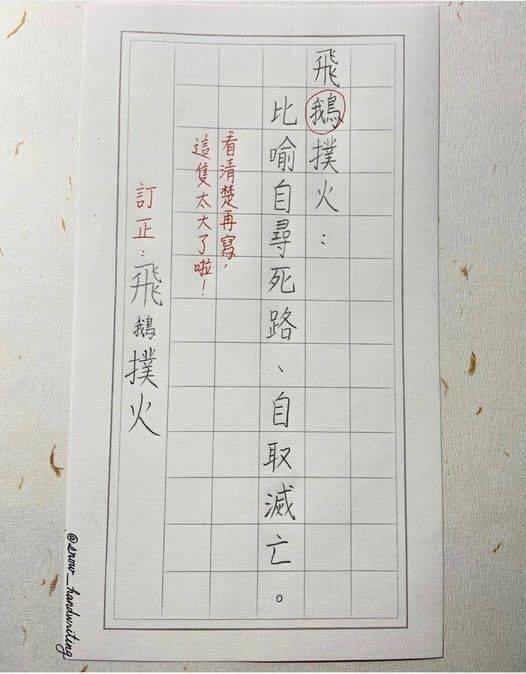 飛鵝撲火：
比喻自尋死路、自取滅亡。
看清楚再寫，
這隻太大了啦！
訂正：飛鵝撲火
@snow_handwriting